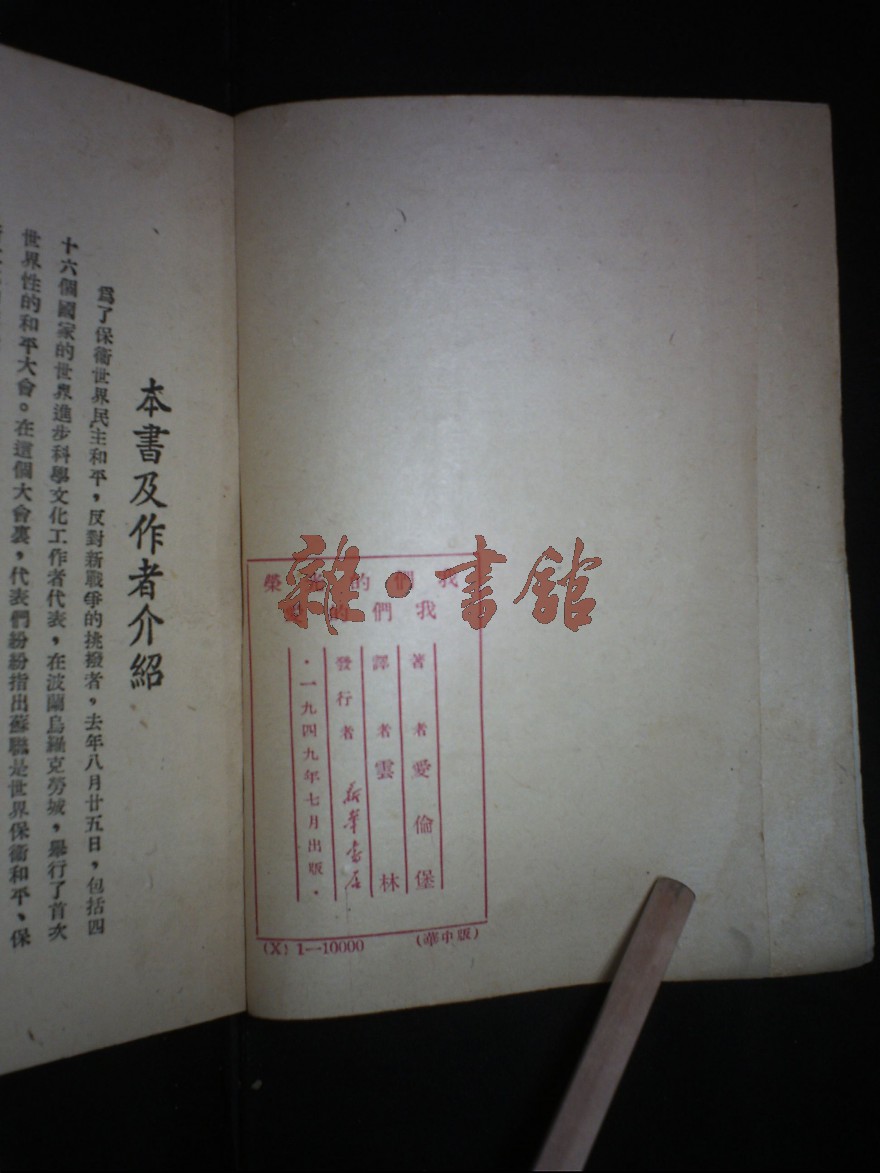 本書及作者介紹
爲了保衛世界民主和平，反對新戰爭的挑撥者，去年八月廿五日，包括四
十六個國家的世界進步科學文化工作者代表，在波蘭烏羅克勞城，舉行了首次
世界性的和平大會。在這個大會裏，代表們紛紛指出蘇聯是世界保衛和平、保
我們的榮
我們的
著者愛倫堡
譯者雲林
發行者新華書店
·一九四九年七月出版·
(X) 1—10000
(華中版)
雜·書館